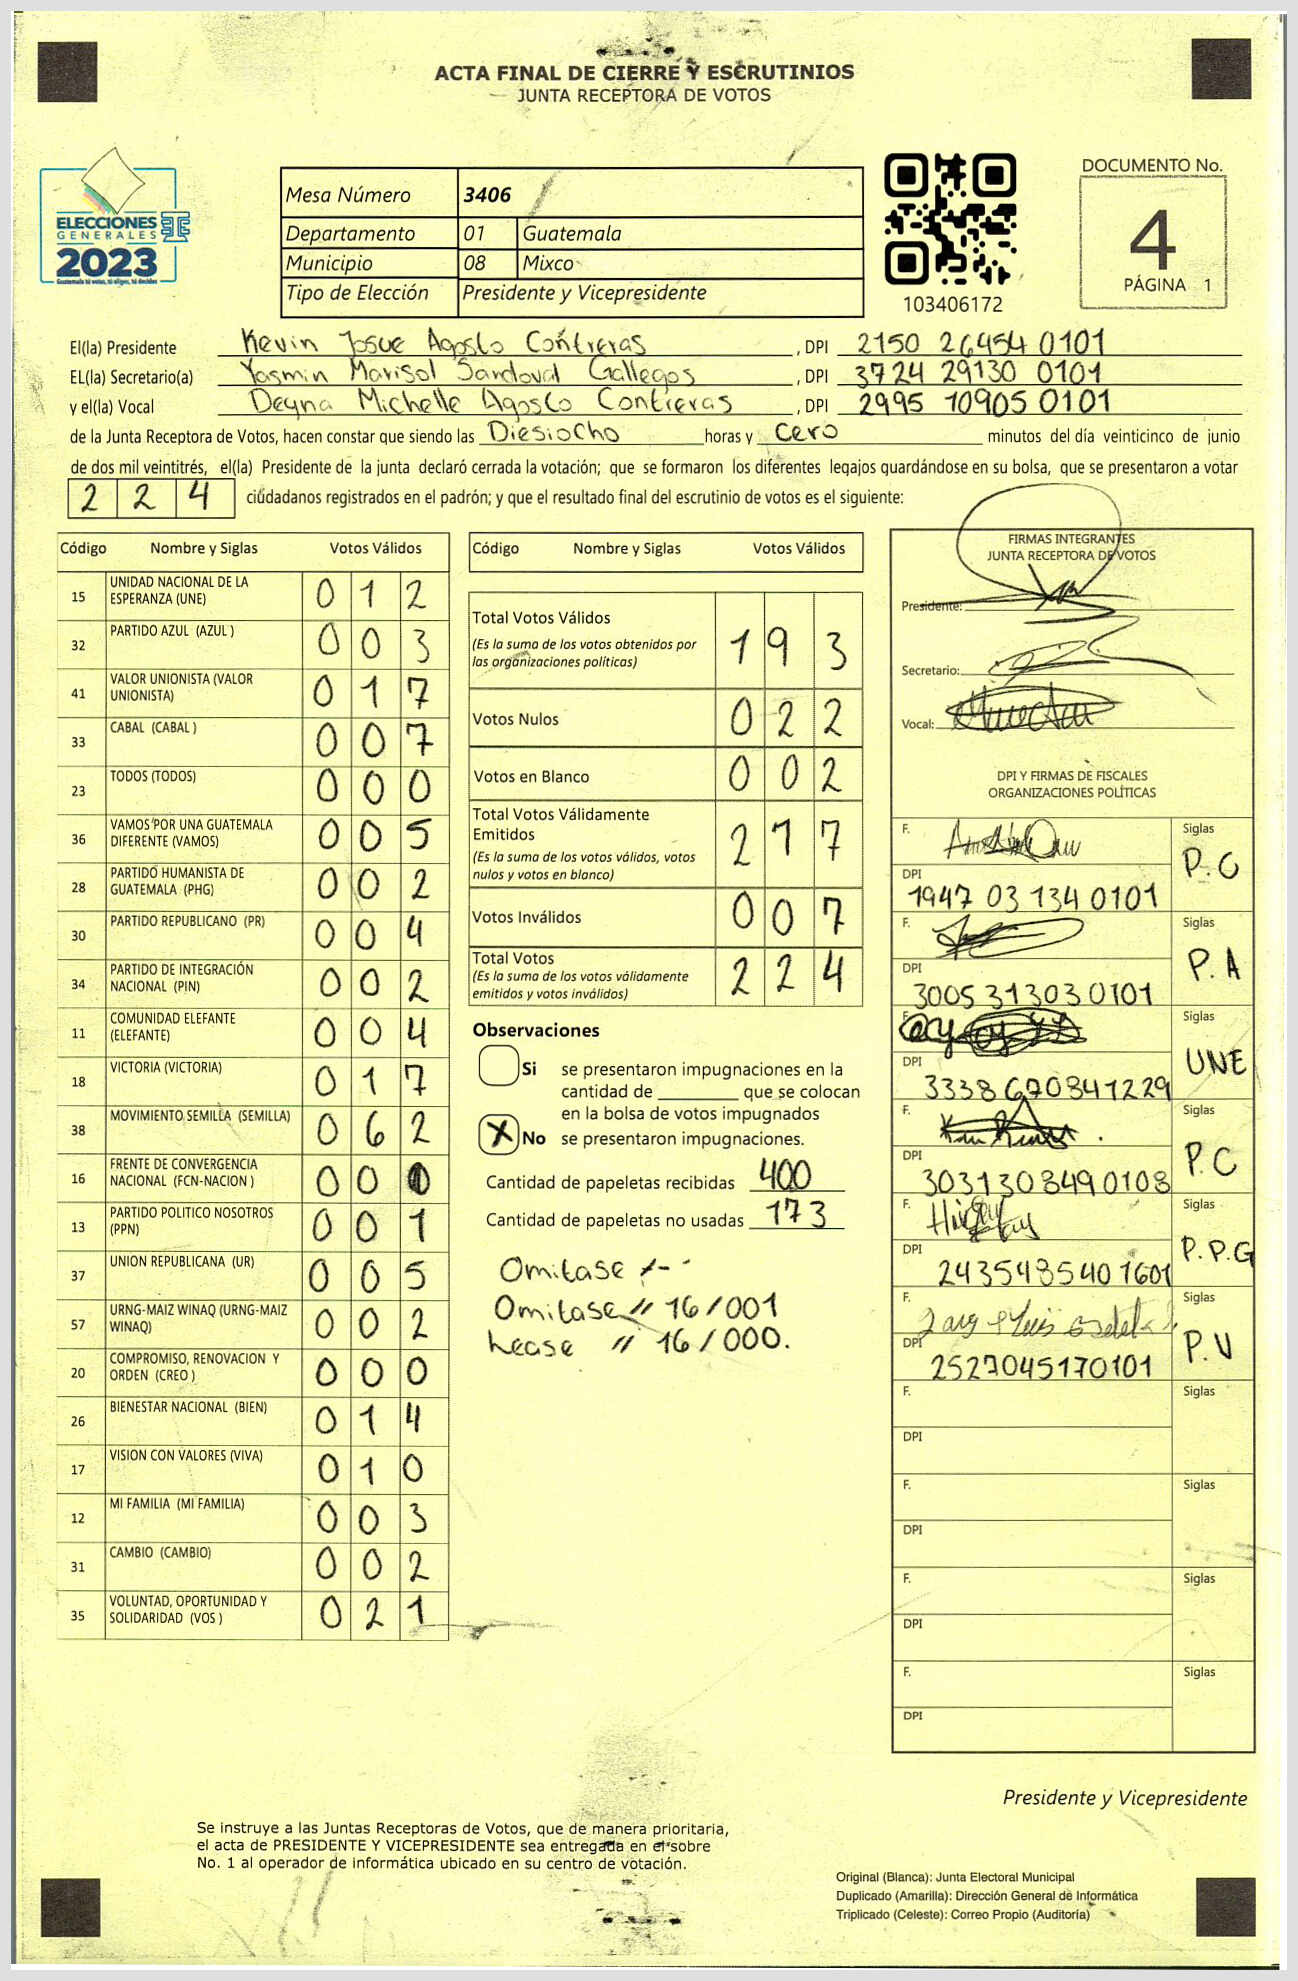 ACTA FINAL DE CIERRE Y ESCRUTINIOS
JUNTA RECEPTORA DE VOTOS
ELECCIONES
GENERALES
2023
Guatemala tú votas, tú eliges, tú decides
Mesa Número 3406
Departamento 01 Guatemala
Municipio 08 Mixco
Tipo de Elección Presidente y Vicepresidente
103406172
DOCUMENTO No.
4
PÁGINA 1
El(la) Presidente Kevin Josue Agosto Contreras , DPI 2150 26454 0101
EL(la) Secretario(a) Yasmin Marisol Sandoval Gallegos , DPI 3724 29130 0101
y el(la) Vocal Deyna Michelle Agosto Contreras , DPI 2995 10905 0101
de la Junta Receptora de Votos, hacen constar que siendo las Diesiocho horas y cero minutos del día veinticinco de junio
de dos mil veintitrés, el(la) Presidente de la junta declaró cerrada la votación; que se formaron los diferentes legajos guardándose en su bolsa, que se presentaron a votar
2 2 4 ciudadanos registrados en el padrón; y que el resultado final del escrutinio de votos es el siguiente:
Código Nombre y Siglas Votos Válidos
15 UNIDAD NACIONAL DE LA ESPERANZA (UNE) 0 1 2
32 PARTIDO AZUL (AZUL ) 0 0 3
41 VALOR UNIONISTA (VALOR UNIONISTA) 0 1 7
33 CABAL (CABAL ) 0 0 7
23 TODOS (TODOS) 0 0 0
36 VAMOS POR UNA GUATEMALA DIFERENTE (VAMOS) 0 0 5
28 PARTIDO HUMANISTA DE GUATEMALA (PHG) 0 0 2
30 PARTIDO REPUBLICANO (PR) 0 0 4
34 PARTIDO DE INTEGRACIÓN NACIONAL (PIN) 0 0 2
11 COMUNIDAD ELEFANTE (ELEFANTE) 0 0 4
18 VICTORIA (VICTORIA) 0 1 7
38 MOVIMIENTO SEMILLA (SEMILLA) 0 6 2
16 FRENTE DE CONVERGENCIA NACIONAL (FCN-NACION ) 0 0 0
13 PARTIDO POLITICO NOSOTROS (PPN) 0 0 1
37 UNION REPUBLICANA (UR) 0 0 5
57 URNG-MAIZ WINAQ (URNG-MAIZ WINAQ) 0 0 2
20 COMPROMISO, RENOVACION Y ORDEN (CREO ) 0 0 0
26 BIENESTAR NACIONAL (BIEN) 0 1 4
17 VISION CON VALORES (VIVA) 0 1 0
12 MI FAMILIA (MI FAMILIA) 0 0 3
31 CAMBIO (CAMBIO) 0 0 2
35 VOLUNTAD, OPORTUNIDAD Y SOLIDARIDAD (VOS ) 0 2 1
Código Nombre y Siglas Votos Válidos
Total Votos Válidos 1 9 3
(Es la suma de los votos obtenidos por
las organizaciones políticas)
Votos Nulos 0 2 2
Votos en Blanco 0 0 2
Total Votos Válidamente
Emitidos 2 1 7
(Es la suma de los votos válidos, votos
nulos y votos en blanco)
Votos Inválidos 0 0 7
Total Votos 2 2 4
(Es la suma de los votos válidamente
emitidos y votos inválidos)
Observaciones
Si se presentaron impugnaciones en la
cantidad de que se colocan
en la bolsa de votos impugnados
X No se presentaron impugnaciones.
Cantidad de papeletas recibidas 400
Cantidad de papeletas no usadas 173
Omitase
Omitase // 16/001
Lease // 16/000.
FIRMAS INTEGRANTES
JUNTA RECEPTORA DE VOTOS
Presidente:
Secretario:
Vocal:
DPI Y FIRMAS DE FISCALES
ORGANIZACIONES POLÍTICAS
F. Siglas P.C
DPI 1947 03 134 0101
F. Siglas P.A
DPI 3005 313030101
F. Siglas UNE
DPI 3338 670841229
F. Siglas P.C
DPI 3031308490108
F. Siglas P.P.G
DPI 2435485401601
F. Siglas P.V
DPI 2527045170101
F. Siglas
DPI
F. Siglas
DPI
F. Siglas
DPI
F. Siglas
DPI
Presidente y Vicepresidente
Se instruye a las Juntas Receptoras de Votos, que de manera prioritaria,
el acta de PRESIDENTE Y VICEPRESIDENTE sea entregada en el sobre
No. 1 al operador de informática ubicado en su centro de votación.
Original (Blanca): Junta Electoral Municipal
Duplicado (Amarilla): Dirección General de Informática
Triplicado (Celeste): Correo Propio (Auditoría)